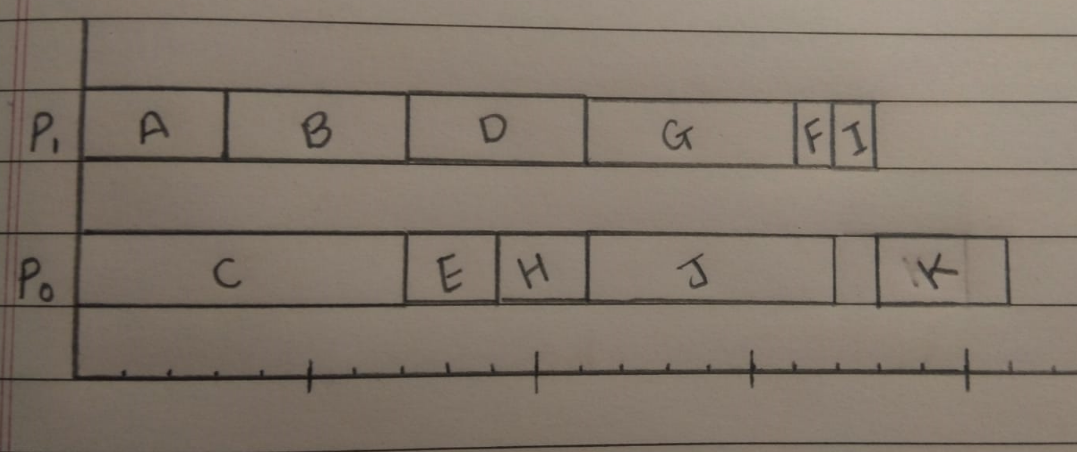 P1 A B D G F I
P0 C E H J K